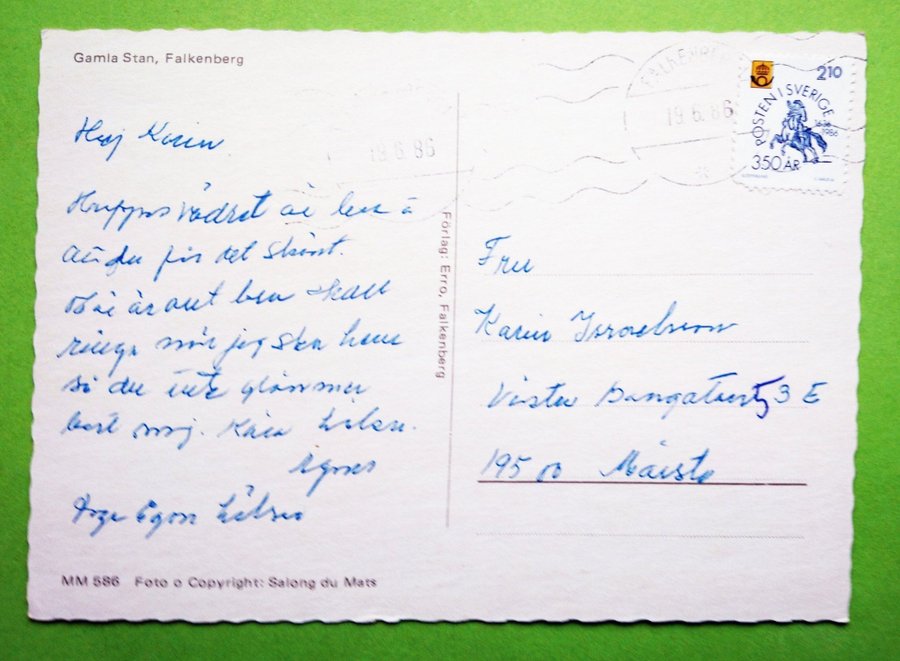 Gamla Stan, Falkenberg
Hej Karin
Hoppas vädret är bra å
att du får det skönt.
är bra skall
ringa när jag ska hem
så du inte glömmer
bort mig. Kära hälsn.
Agnes
Egon hälsar
MM 586 Foto o Copyright: Salong du Mats
Förlag: Erro, Falkenberg
FALKENBERG
19 6. 86
19 6 86
210
POSTEN I SVERIGE
1636
1986
350 ÅR
Fru
Karin Israelsson
Västra Bangatan 3 E
195 00 Märsta